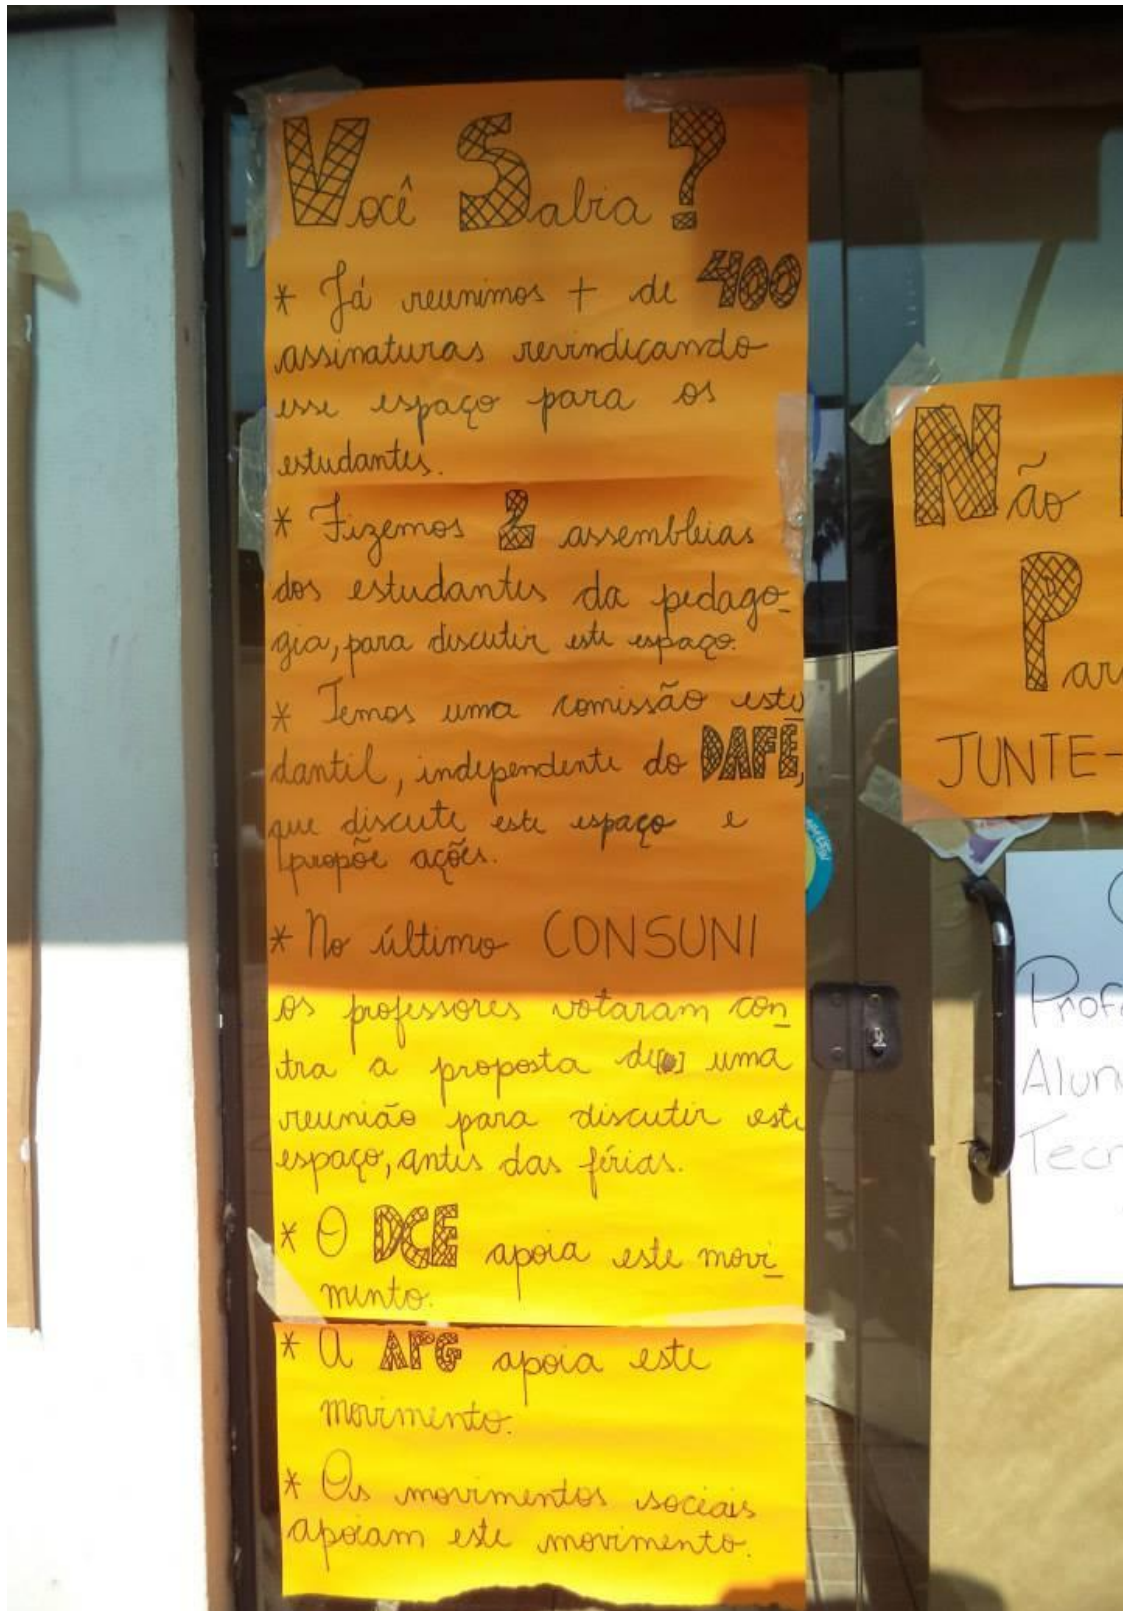 Você Sabia?
* Já reunimos + de 400
assinaturas revindicando
esse espaço para os
estudantes.
* Fizemos 2 assembleias
dos estudantes da pedago-
gia, para discutir este espaço.
* Temos uma comissão estu
dantil, independente do DAFE,
que discute este espaço e
propõe ações.
* No último CONSUNI
os professores votaram con
tra a proposta de uma
reunião para discutir este
espaço, antes das férias.
* O DCE apoia este movi
mento.
* A APG apoia este
movimento.
* Os movimentos sociais
apoiam este movimento.
Não
P
JUNTE-